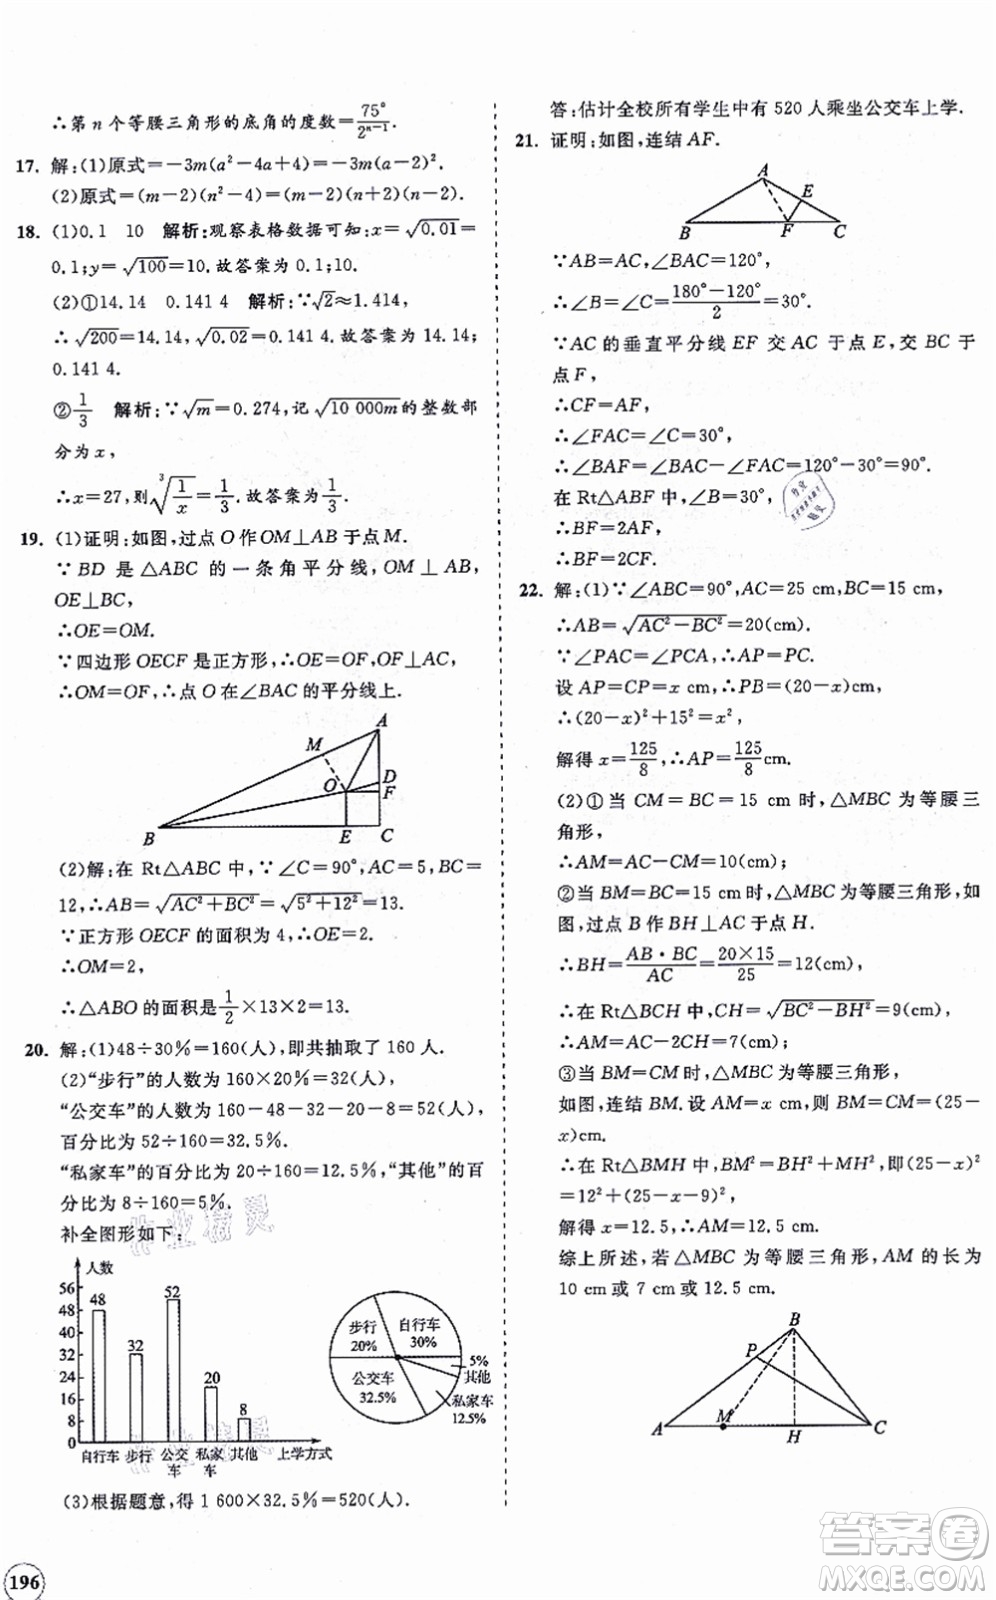 ∴第 n 个等腰三角形的底角的度数=75°/2ⁿ⁻¹.
17. 解:(1)原式=-3m(a²-4a+4)=-3m(a-2)².
(2)原式=(m-2)(n²-4)=(m-2)(n+2)(n-2).
18. (1)0.1 10 解析:观察表格数据可知:x=√0.01=
0.1;y=√100=10.故答案为 0.1;10.
(2)①14.14 0.141 4 解析:∵√2≈1.414,
∴√200=14.14,√0.02=0.141 4.故答案为14.14;
0.141 4.
②1/3 解析:∵√m=0.274,记√10 000m的整数部
分为 x,
∴x=27,则∛(1/x)=1/3.故答案为1/3.
19. (1)证明:如图,过点 O 作 OM⊥AB 于点 M.
∵BD 是△ABC 的一条角平分线,OM⊥AB,
OE⊥BC,
∴OE=OM.
∵四边形 OECF 是正方形,∴OE=OF,
∴OM=OF,∴点 O 在∠BAC 的平分线上.
A
M
D
O
F
B
E
C
(2)解:在 Rt△ABC 中,∵∠C=90°,AC=5,BC=
12,∴AB=√(AC²+BC²)=√(5²+12²)=13.
∵正方形 OECF 的面积为 4,∴OE=2.
∴OM=2,
∴△ABO 的面积是1/2×13×2=13.
20. 解:(1)48÷30%=160(人),即共抽取了 160 人.
(2)“步行”的人数为 160×20%=32(人),
“公交车”的人数为 160-48-32-20-8=52(人),
百分比为 52÷160=32.5%.
“私家车”的百分比为 20÷160=12.5%,“其他”的百
分比为 8÷160=5%.
补全图形如下:
人数
56
48
40
32
24
16
8
0
48
32
52
20
8
自行车 步行 公交车 私家车 其他 上学方式
步行 20%
自行车 30%
5% 其他
公交车 32.5%
私家车 12.5%
(3)根据题意,得 1 600×32.5%=520(人).
196
答:估计全校所有学生中有 520 人乘坐公交车上学.
21. 证明:如图,连结 AF.
A
E
B
F
C
∵AB=AC,∠BAC=120°,
∴∠B=∠C=(180°-120°)/2=30°.
∵AC 的垂直平分线 EF 交 AC 于点 E,交 BC 于
点 F,
∴CF=AF,
∴∠FAC=∠C=30°,
∴∠BAF=∠BAC-∠FAC=120°-30°=90°.
在 Rt△ABF 中,∠B=30°,
∴BF=2AF,
∴BF=2CF.
22. 解:(1)∵∠ABC=90°,AC=25 cm,BC=15 cm,
∴AB=√(AC²-BC²)=20(cm).
∵∠PAC=∠PCA,∴AP=PC.
设 AP=CP=x cm,∴PB=(20-x)cm,
∴(20-x)²+15²=x²,
解得 x=125/8,∴AP=125/8cm.
(2)①当 CM=BC=15 cm 时,△MBC 为等腰三
角形,
∴AM=AC-CM=10(cm);
②当 BM=BC=15 cm 时,△MBC 为等腰三角形,如
图,过点 B 作 BH⊥AC 于点 H.
∴BH=AB·BC/AC=20×15/25=12(cm),
∴在 Rt△BCH 中,CH=√(BC²-BH²)=9(cm),
∴AM=AC-2CH=7(cm);
③当 BM=CM 时,△MBC 为等腰三角形,
如图,连结 BM.设 AM=x cm,则 BM=CM=(25-
x)cm.
∴在 Rt△BMH 中,BM²=BH²+MH²,即(25-x)²
=12²+(25-x-9)²,
解得 x=12.5,∴AM=12.5(cm).
综上所述,若△MBC 为等腰三角形,AM 的长为
10 cm 或 7 cm 或 12.5 cm.
B
P
A
M
H
C
作业精灵
作业精灵
答案卷
MXQE.COM